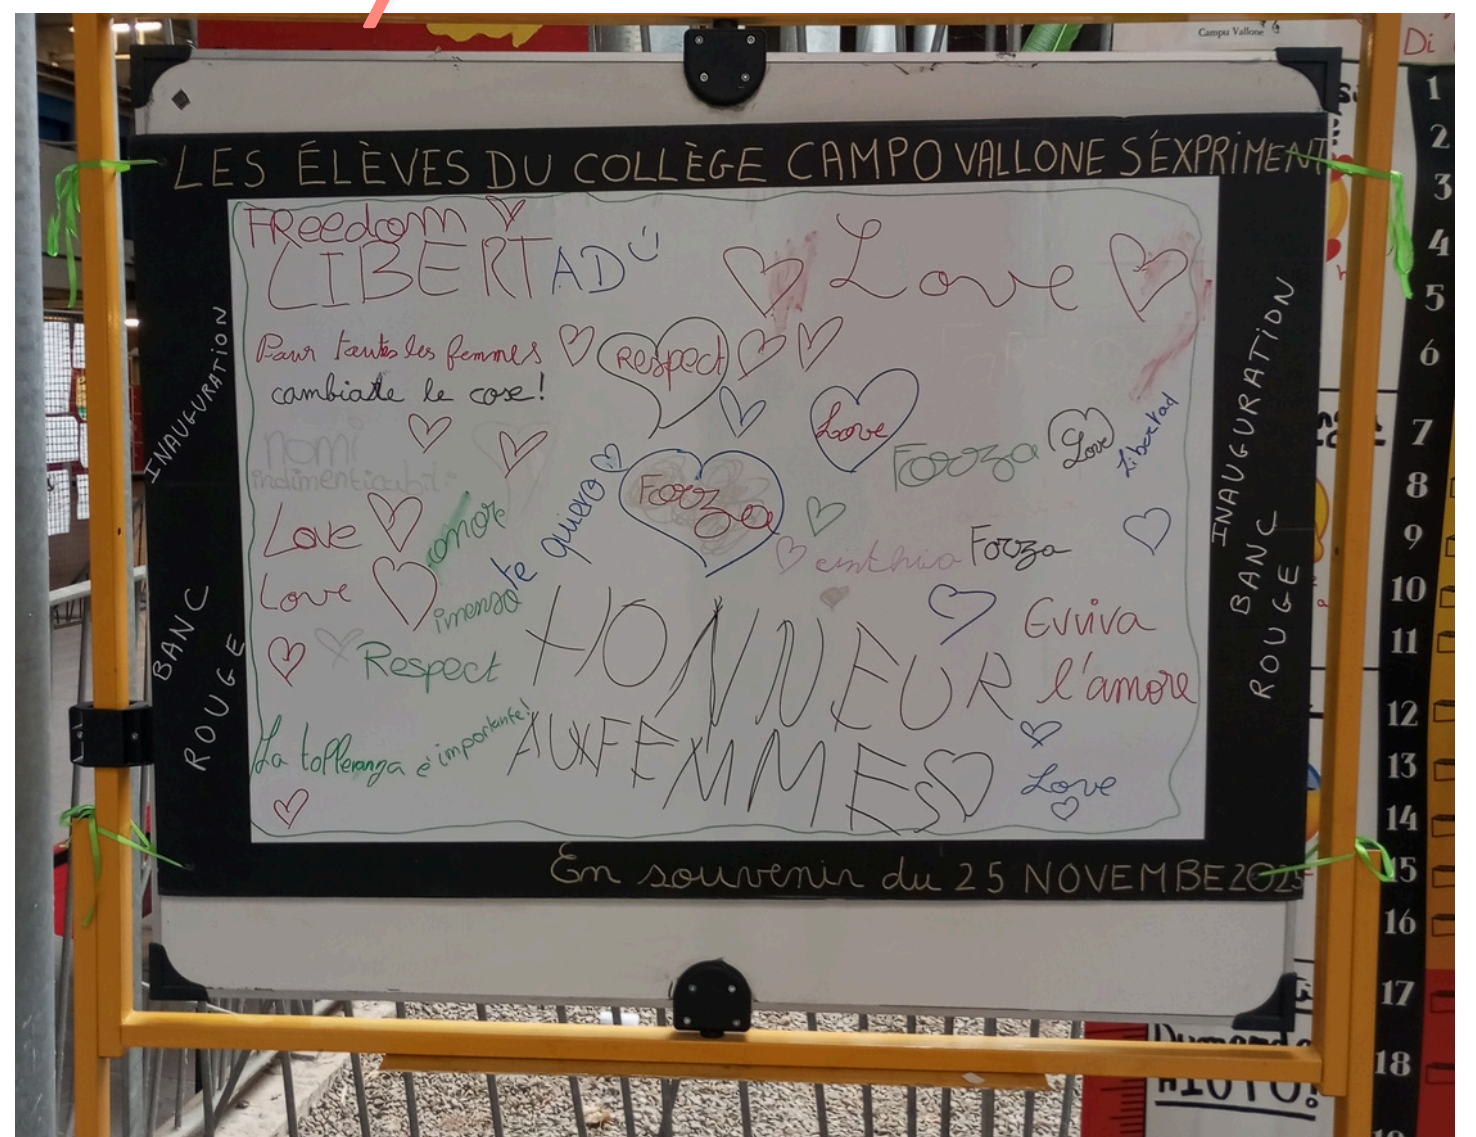 Campu Vallone
Di
LES ÉLÈVES DU COLLÈGE CAMPO VALLONE S'EXPRIMENT
INAUGURATION
BANC
ROUGE
FReedom
LIBERTAD
Love
Pour toutes les femmes
cambiate le cose!
Respect
Love
Forza
Love
Libertad
nomi
indimenticabili
Love
amore
te quiero
Forza
Forza
Love
imenso
Respect
HONNEUR
AUX FEMMES
Evviva
l'amore
La tolleranza è importante!
Love
INAUGURATION
BANC
ROUGE
En souvenir du 25 NOVEMBE 2025
1
2
3
4
5
6
7
8
9
10
11
12
13
14
15
16
17
18